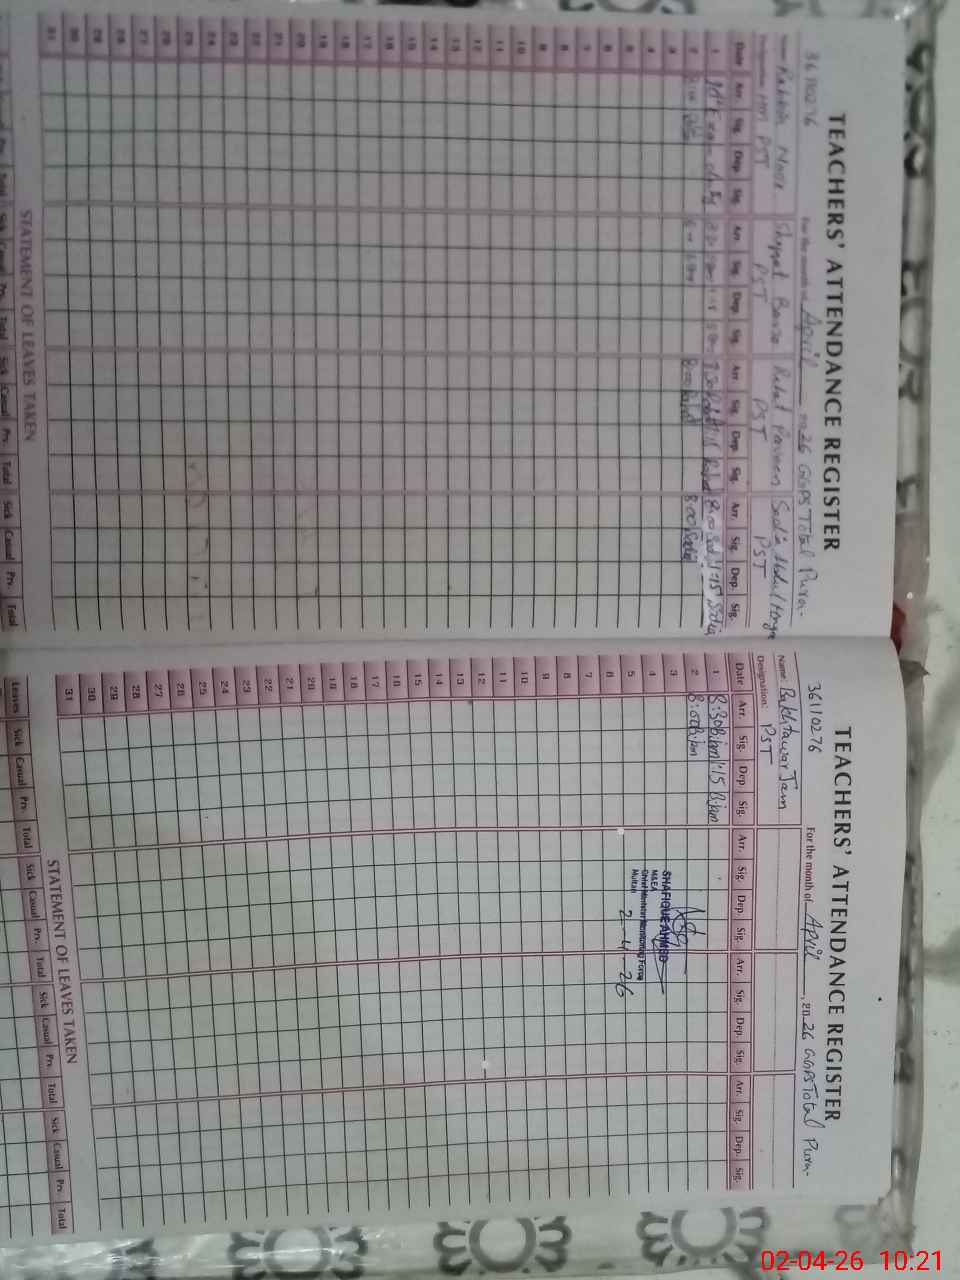 TEACHERS' ATTENDANCE REGISTER
36110276 For the month of April 2026 GGPS Total Pura.
Name: Noor Shazad Bano Rahat Parveen Sadia Abdul
Designation: HM PST PST PST PST
Date Arr. Sig. Dep. Sig. Arr. Sig. Dep. Sig. Arr. Sig. Dep. Sig. Arr. Sig. Dep. Sig.
1 Exam duty 8:00 Sadia 1:15 Sadia
2 8:00 Rahat 8:00 Sadia
3
4
5
6
7
8
9
10
11
12
13
14
15
16
17
18
19
20
21
22
23
24
25
26
27
28
29
30
31
STATEMENT OF LEAVES TAKEN
Sick Casual Prv. Total Sick Casual Prv. Total Sick Casual Prv. Total
TEACHERS' ATTENDANCE REGISTER
36110276 For the month of April, 2026 GGPS Total Pura.
Name: Bakhtawar Jam
Designation: PST
Date Arr. Sig. Dep. Sig. Arr. Sig. Dep. Sig. Arr. Sig. Dep. Sig. Arr. Sig. Dep. Sig.
1 8:30 B.jam 1:15 B.jam
2 8:00 B.jam
3
4
5
6
7
8
9
10
11
12
13
14
15
16
17
18
19
20
21
22
23
24
25
26
27
28
29
30
31
SHAFIQUE AHMED
M&EA
Chief Minister Monitoring Force
Multan
2-4-26
STATEMENT OF LEAVES TAKEN
Leaves Sick Casual Prv. Total Sick Casual Prv. Total Sick Casual Prv. Total Sick Casual Prv. Total
02-04-26 10:21